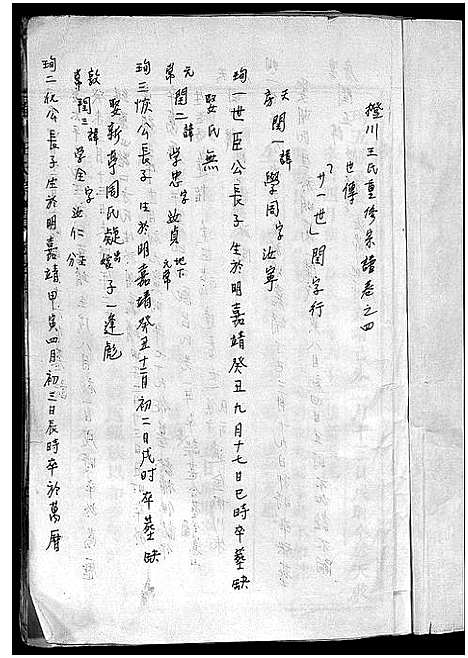 橙川王氏重修宗譜卷之四
世傳
「廿一世」閏字行
天房 閏一 諱學周字汝寧
珣一世臣公長子 生於明嘉靖癸丑九月十七巳時卒葬缺
娶氏無
元 閏二 諱学忠字汝貞
珣三恢公長子 生於明嘉靖癸丑十二月初二日戌时卒葬缺
娶新亭周氏 子一逢彪
敦 閏三 諱学全字汝仁
珣二 公長子生於明嘉靖甲寅四月初三日辰時卒於萬曆